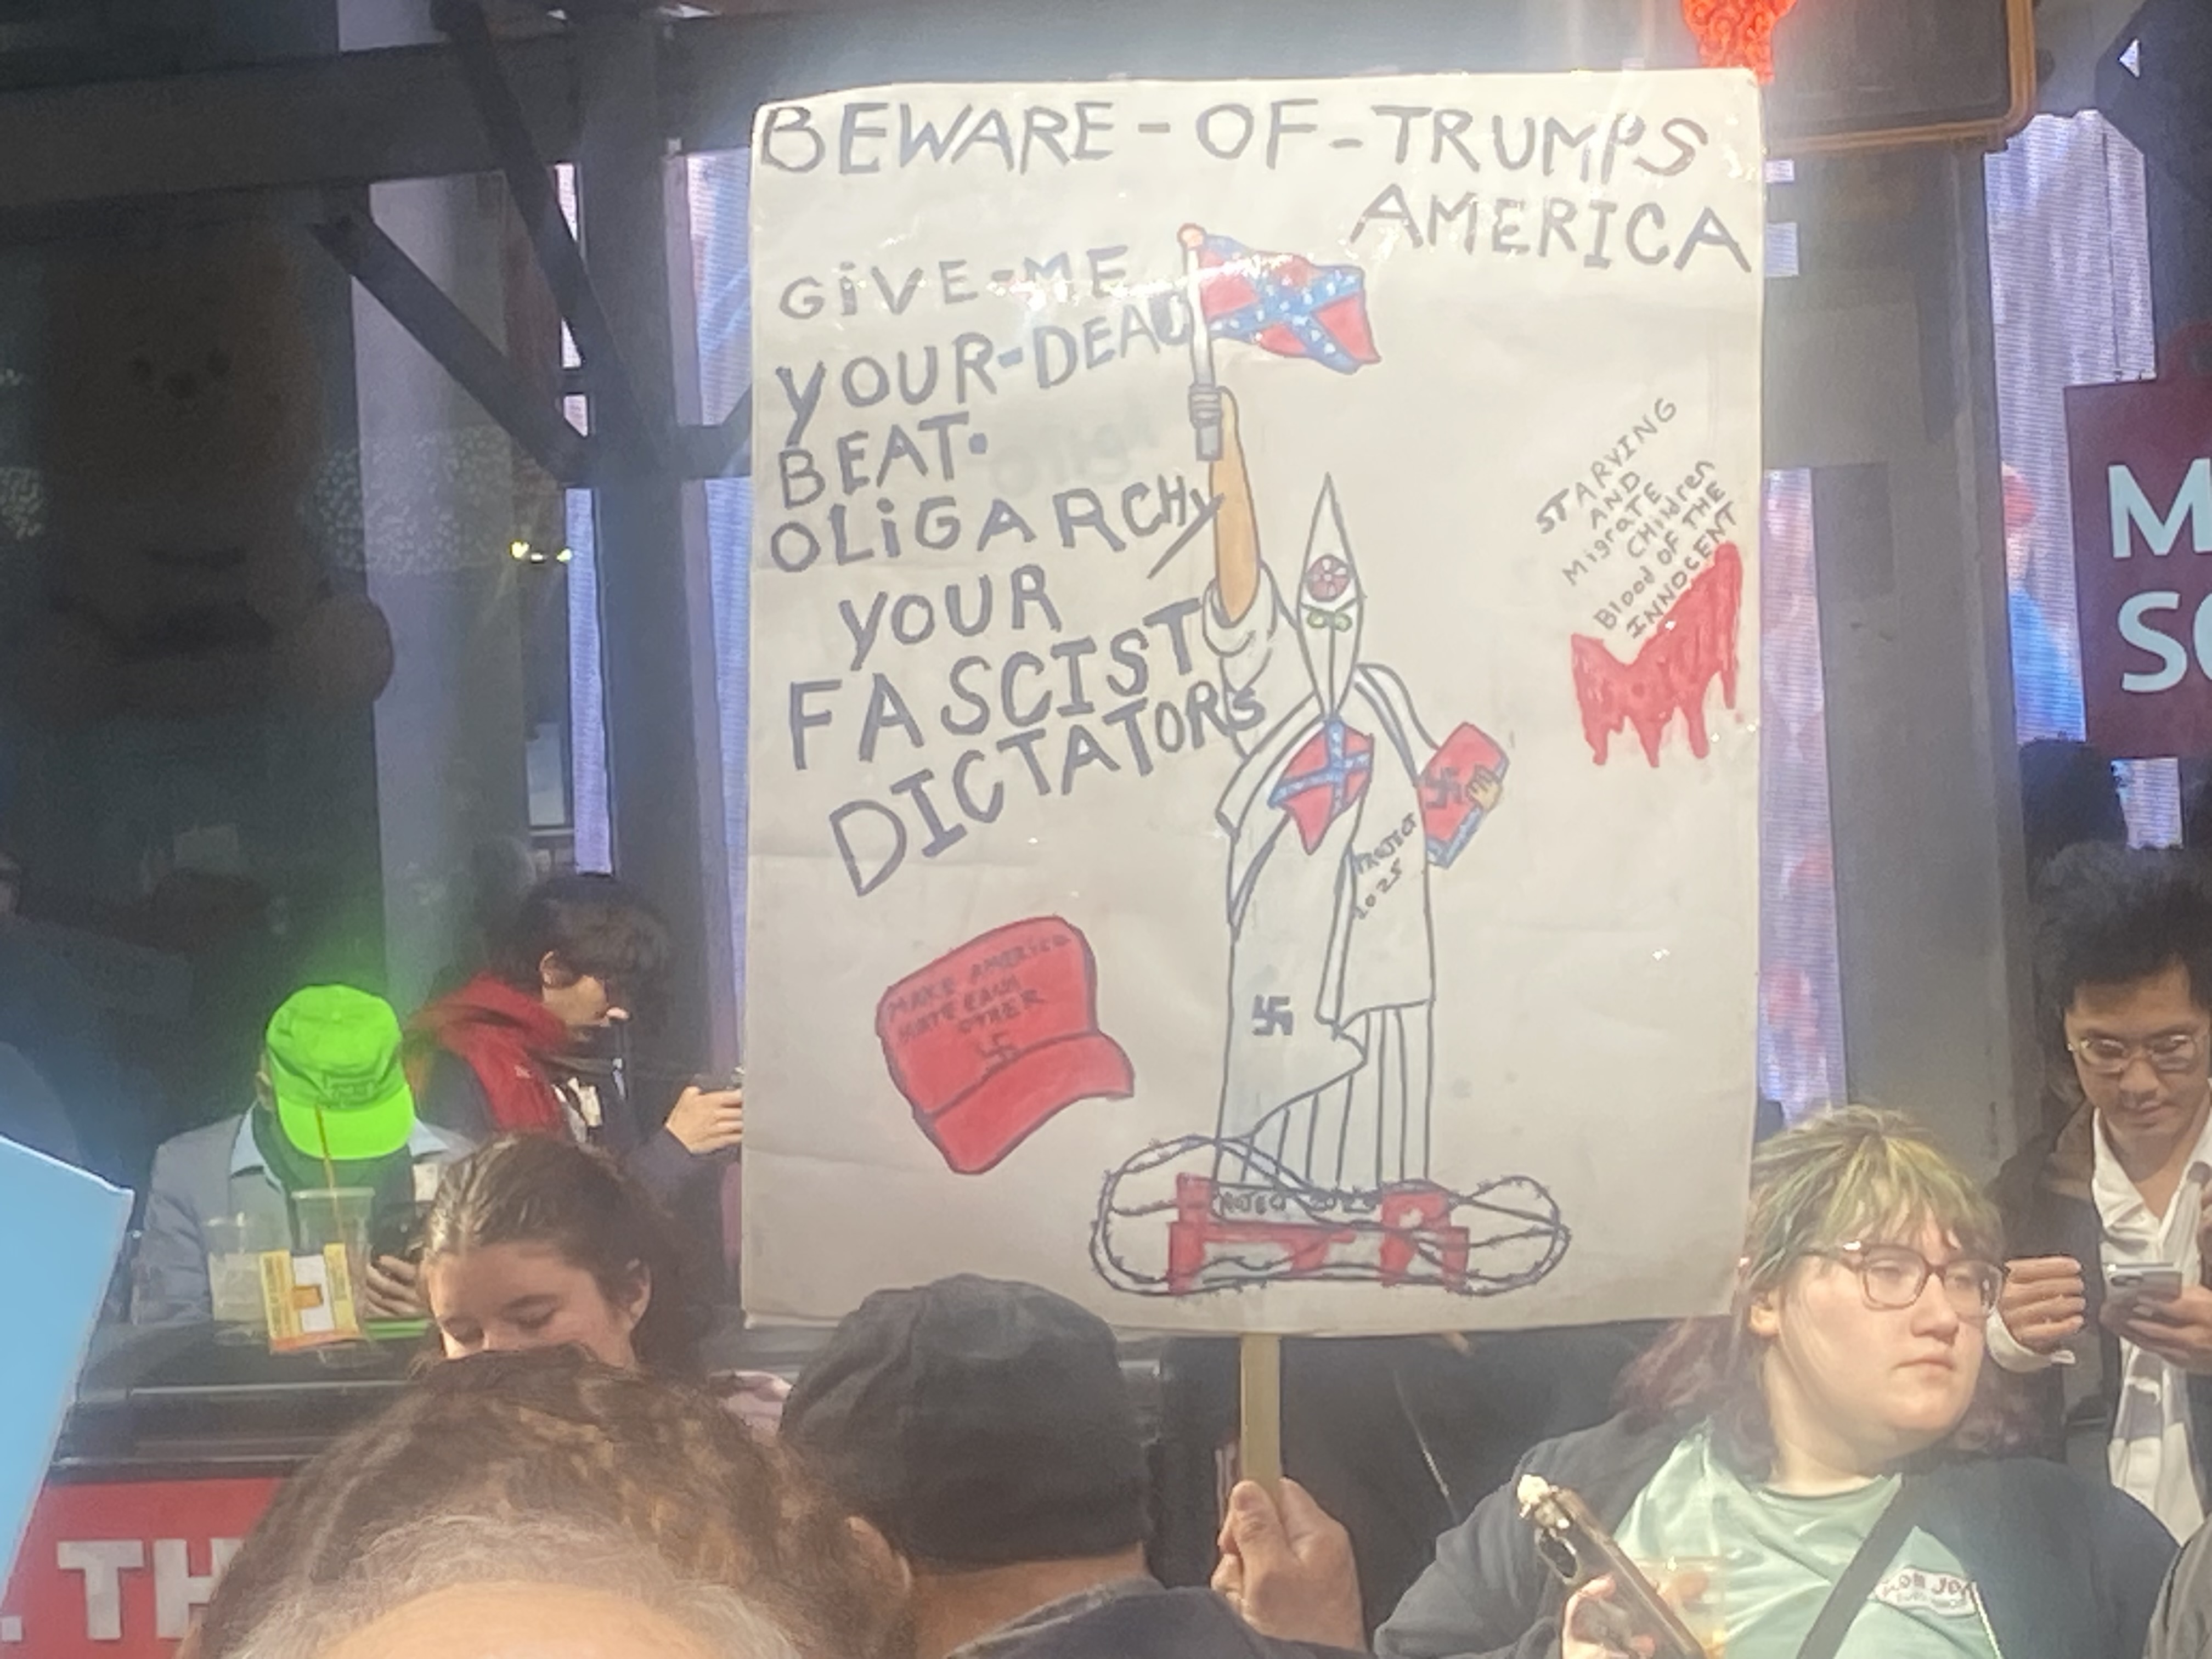 BEWARE-OF-TRUMPS
AMERICA
GiVE-ME
YOUR-DEAD
BEAT-
OLiGARCHY
YOUR
FASCIST
DICTATORS
STARVING
AND
MigratE
CHildren
Blood OF THE
INNOCENT
PROJECT
2025
MAKE AMERICA
HATE EACH
OTHER
M
SC
. TH